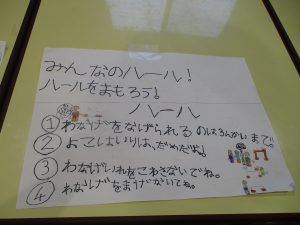 みんなのルール!
ルールをまもろう!
ルール
① わなげをなげられるのは3かいまで。
② よこはいりは、だめだね。
③ わなげいれをこわさないでね。
④ わなげをまげないでね。